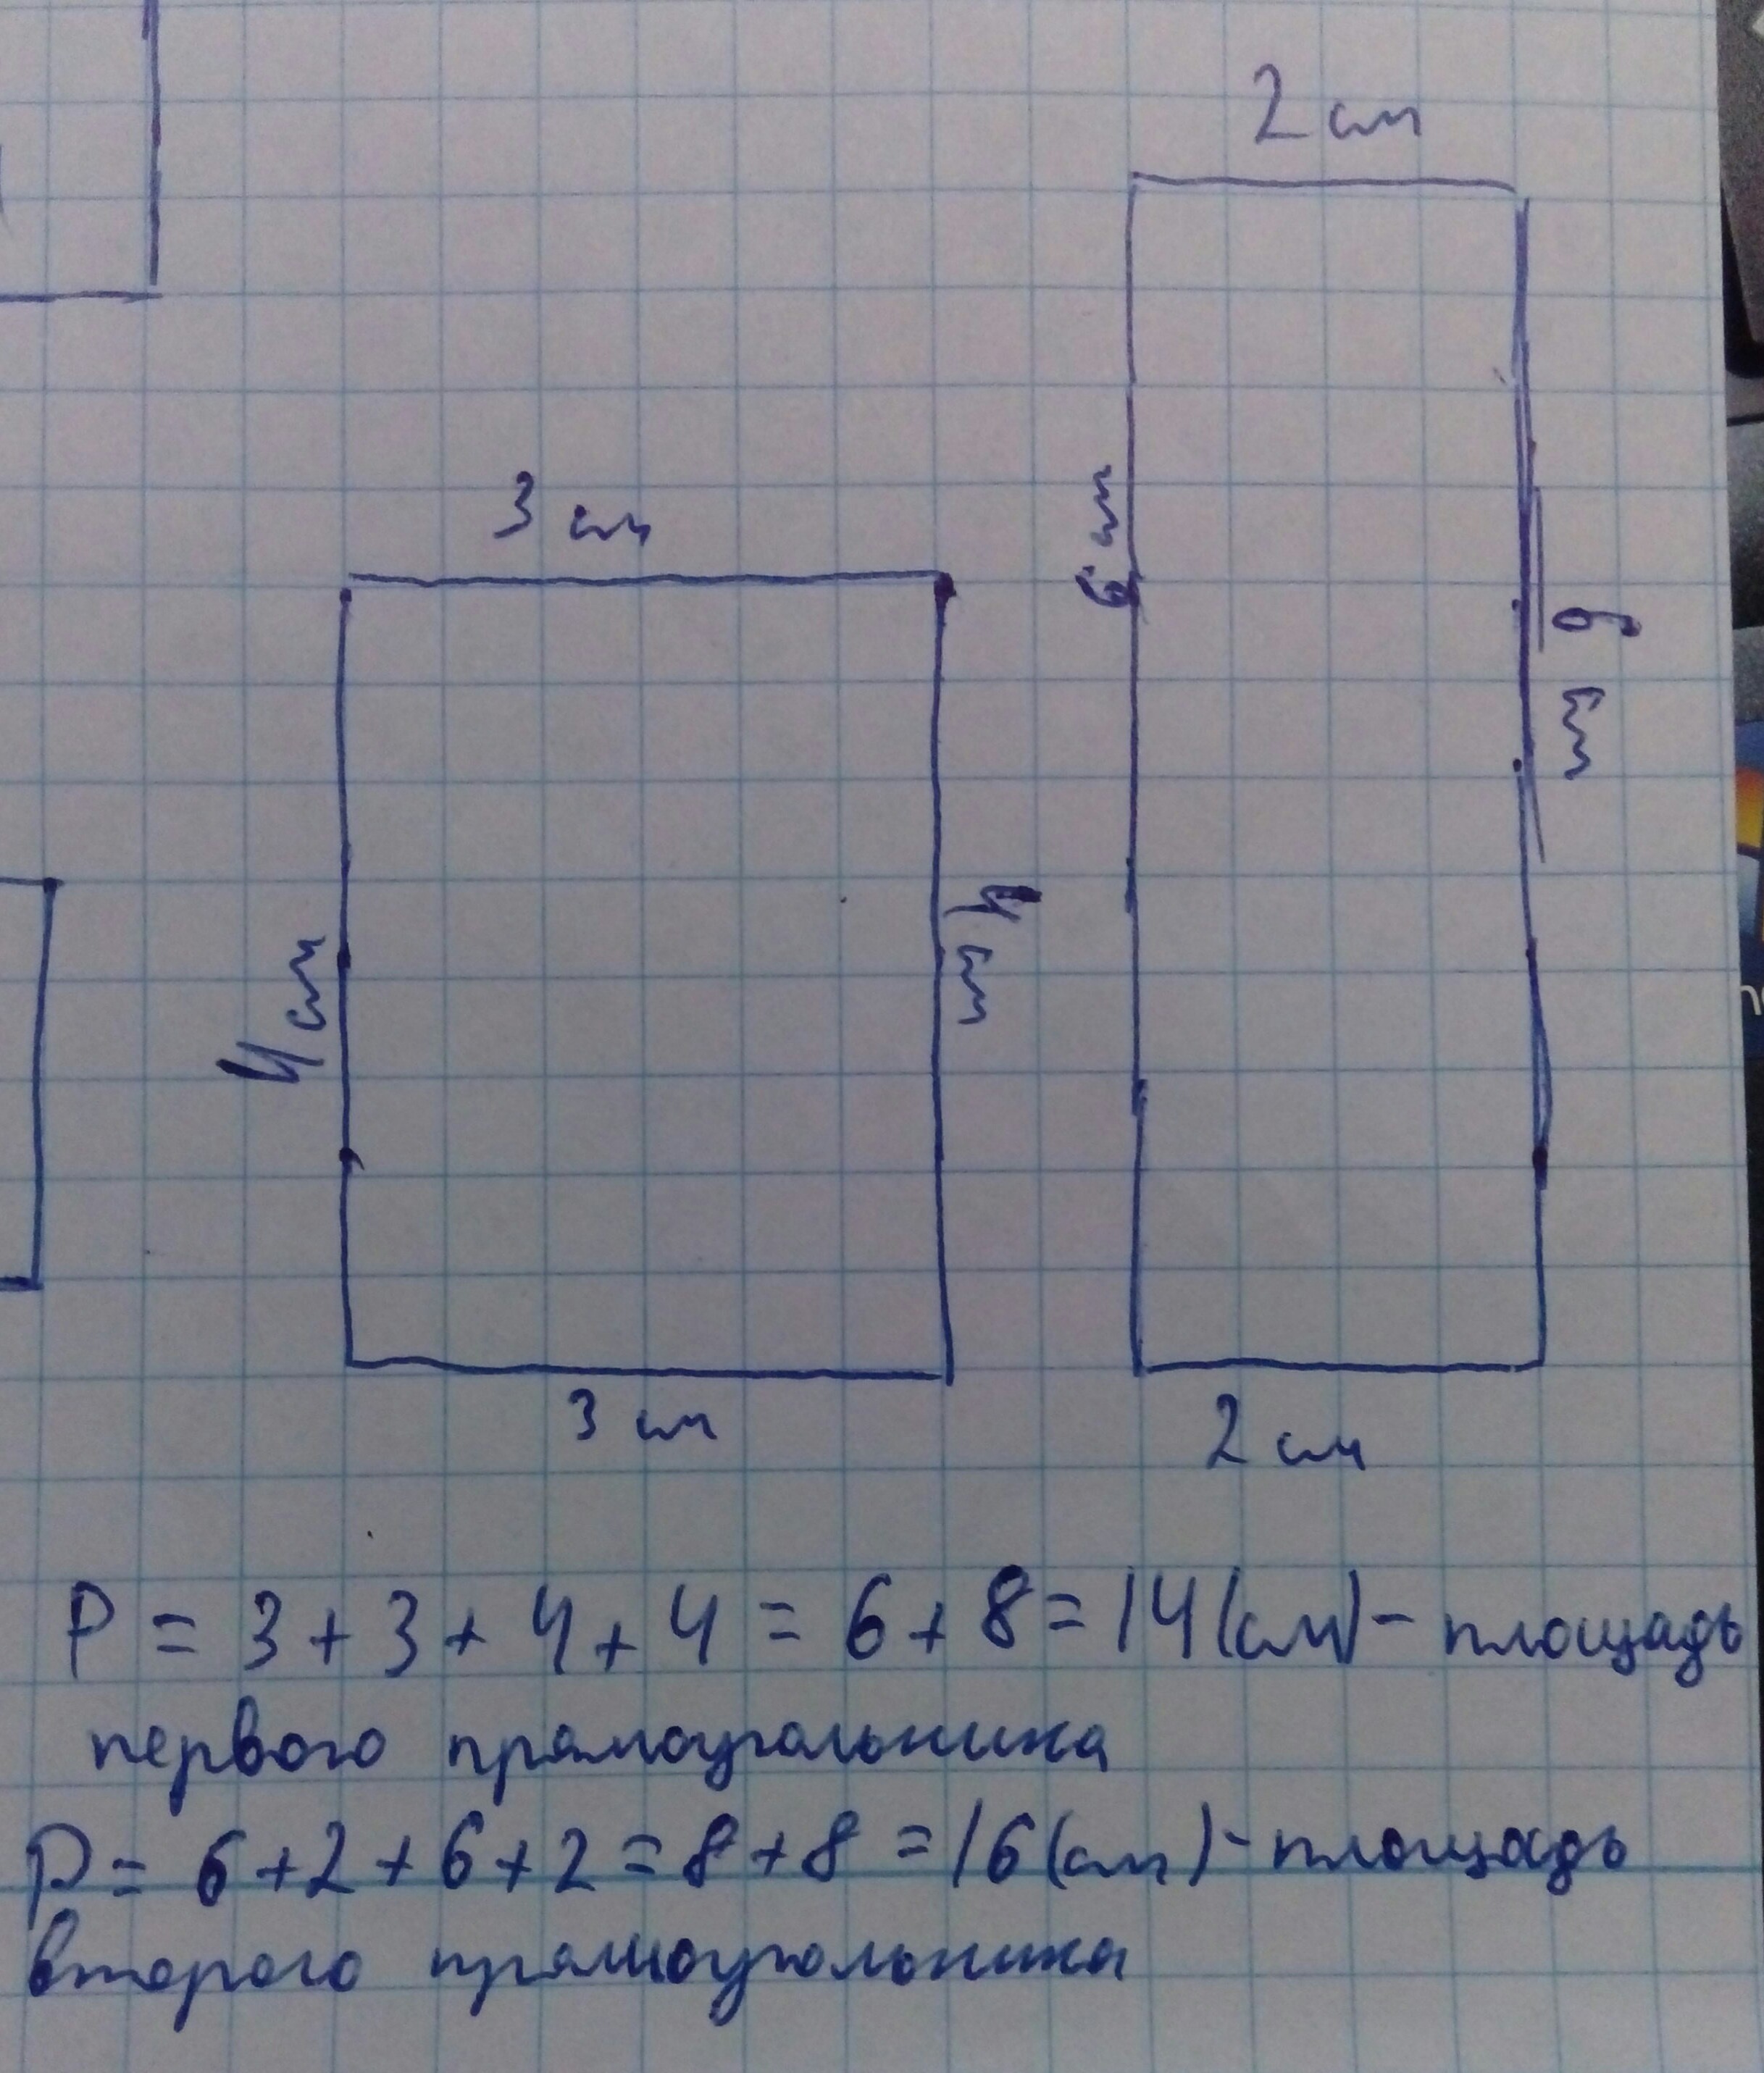 2 см
3 см
6 см
6 см
4 см
4 см
3 см
2 см
P = 3 + 3 + 4 + 4 = 6 + 8 = 14 (см) - площадь
первого прямоугольника
P = 6 + 2 + 6 + 2 = 8 + 8 = 16 (см) - площадь
второго прямоугольника